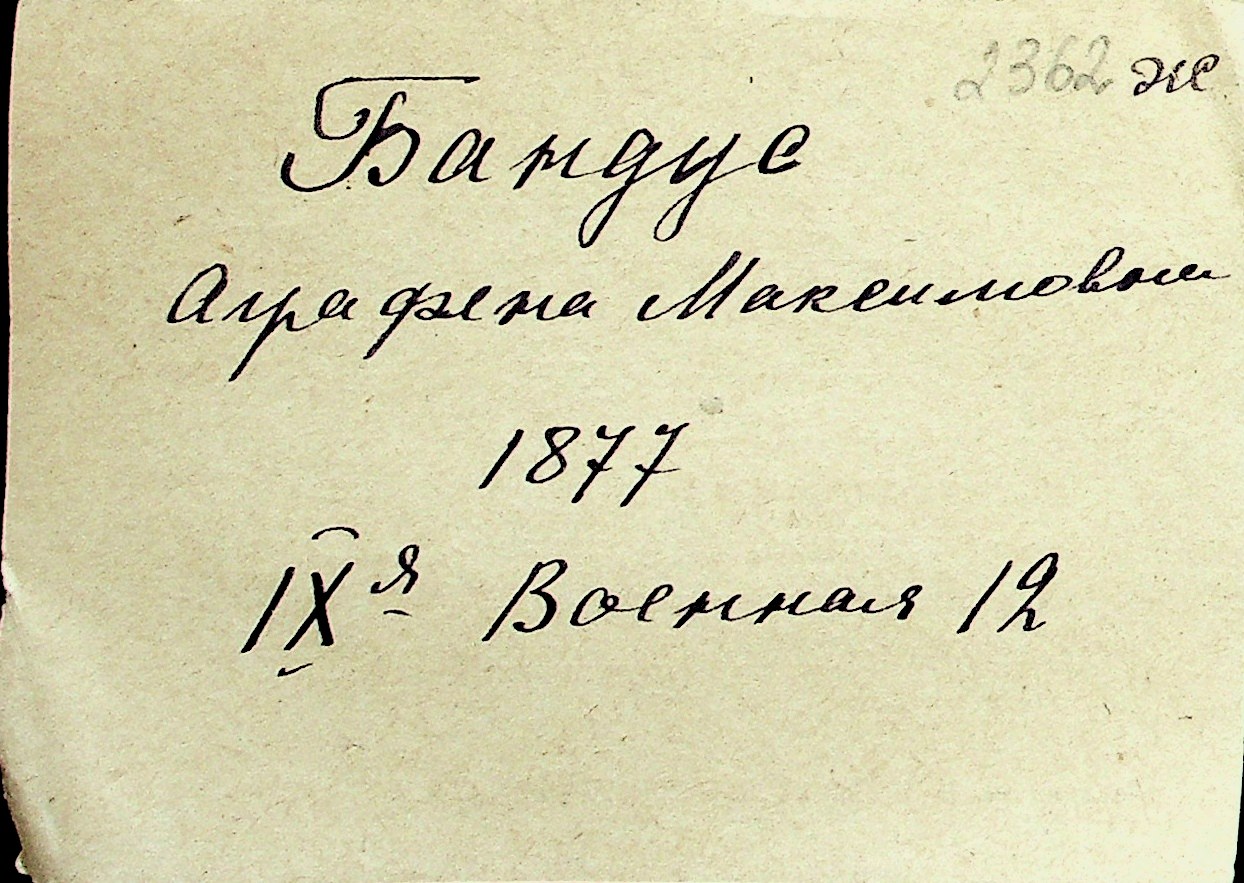 2362 ж
Бандус
Аграфена Максимовна
1877
IXя Военная 12